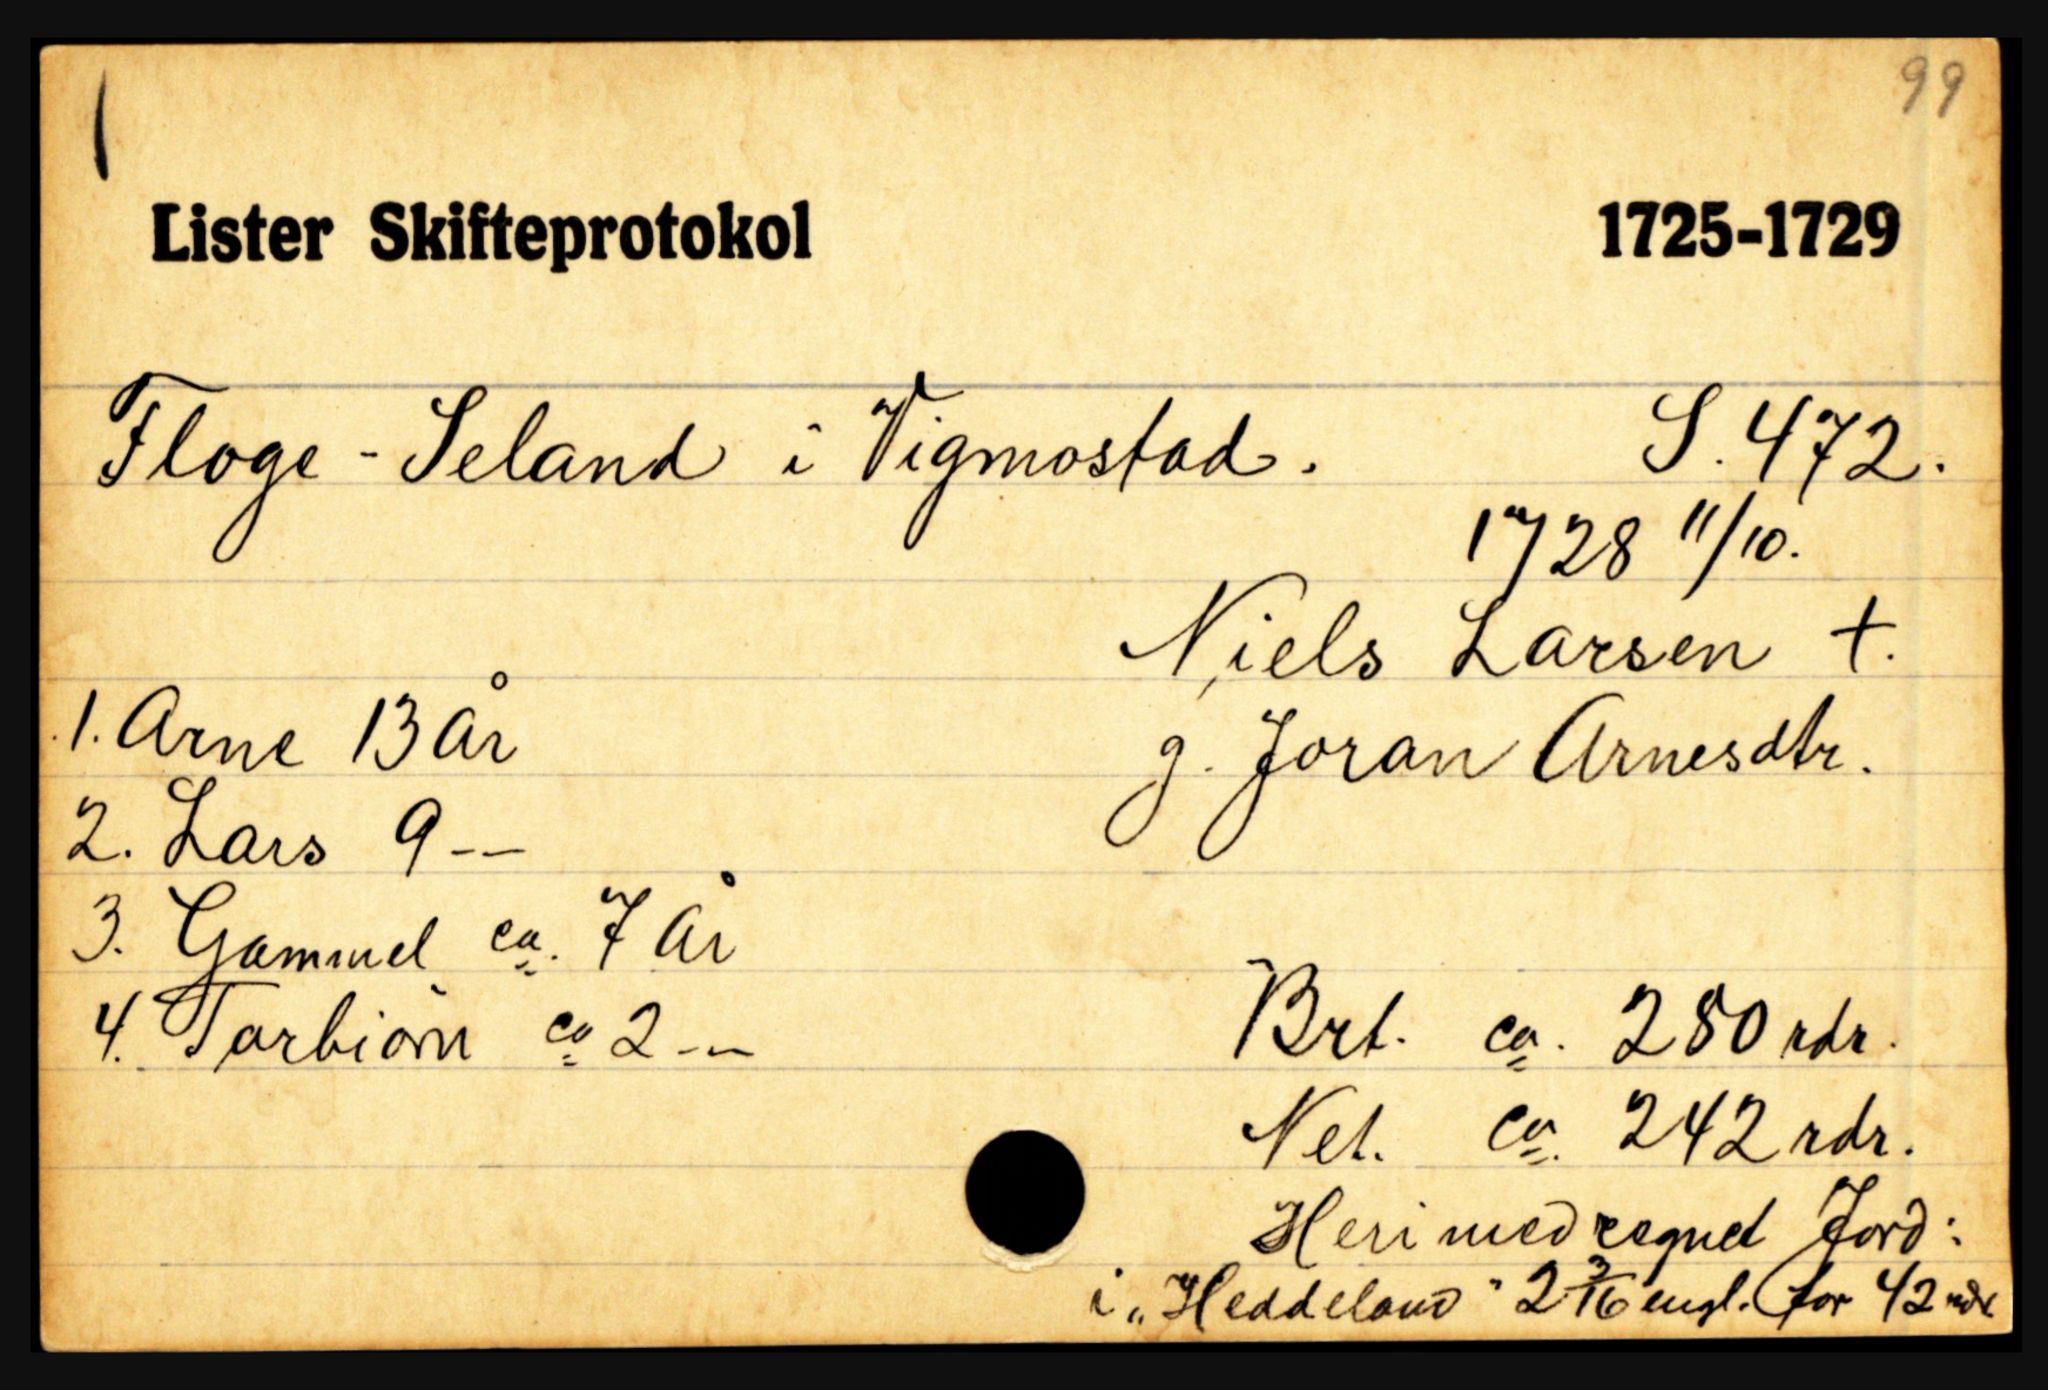 99
Lister Skifteprotokol 1725-1729
Floge - Seland i Vigmostad. S. 472.
1728 11/10.
Niels Larsen †.
g. Joran Arnesdtr.
1. Arne 13 år
2. Lars 9 --
3. Gammel ca. 7 år
4. Torbiørn ca 2 --
Brt. ca. 280 rdr.
Net. ca. 242 rdr.
Heri medregnet Jord:
i „Heddeland" 2 3/16 engl. for 42 rdr